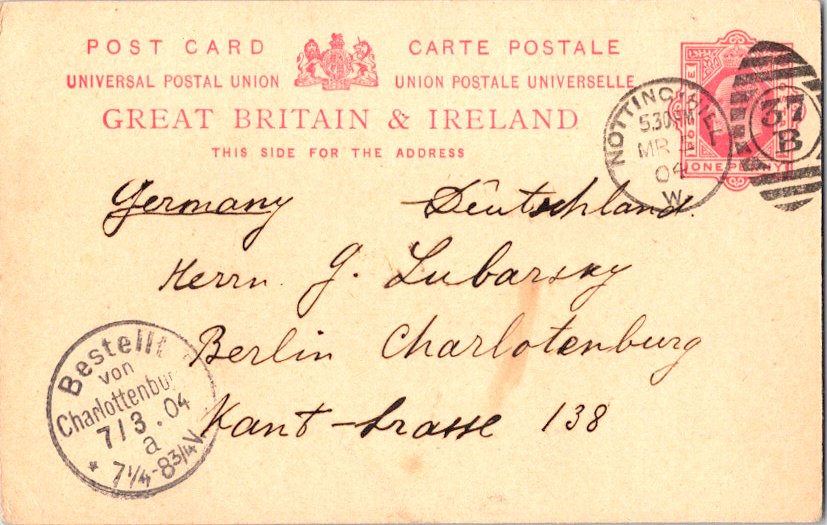 POST CARD CARTE POSTALE
UNIVERSAL POSTAL UNION UNION POSTALE UNIVERSELLE
GREAT BRITAIN & IRELAND
THIS SIDE FOR THE ADDRESS
POSTAGE
ONE PENNY
NOTTING-HILL
5.30PM
MR
04
W.
37
B
Germany Deutschland.
Herrn J. Lubarsky
Berlin Charlotenburg
Kant-strasse 138
Bestellt
von
Charlottenbur
7/3.04
a
* 7 1/4-8 3/4 V